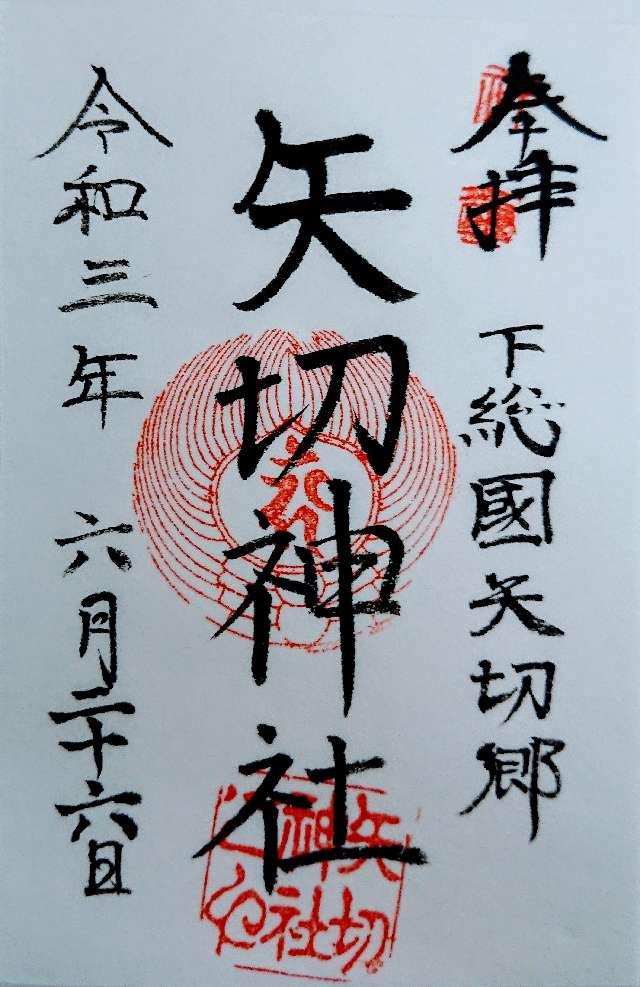 奉拝
下総國矢切郷
矢切神社
令和三年 六月二十六日
矢切
神社